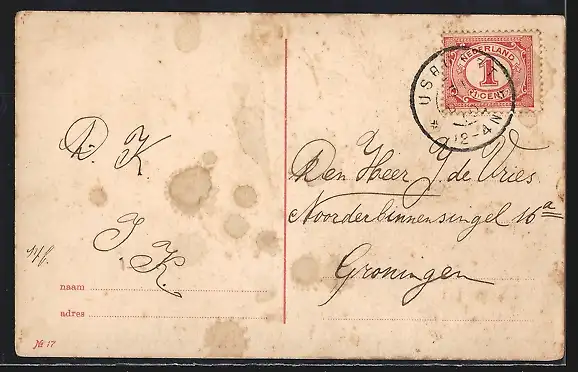 D. K.
J. K.
naam
adres
No 17
NEDERLAND
1
1 CENT
12-4 N
Den Heer J. de Vries
Noorderbinnensingel 16a
Groningen